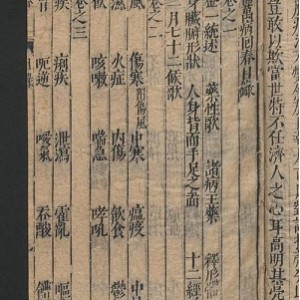 豈敢以欺當世特不任濟人之心耳高明其
萬病回春目錄
卷之一
金一統述 藥性歌 諸病主藥 釋形體
身臟腑形狀 人身背面手足之圖
二月七十二候歌 十二經
卷之二
風 傷寒附傷風 中寒 瘟疫 中
火症 內傷 飲食 鬱
咳嗽 喘急 哮吼
卷之三
疾 泄瀉 霍亂
呃逆 噯氣 吞酸